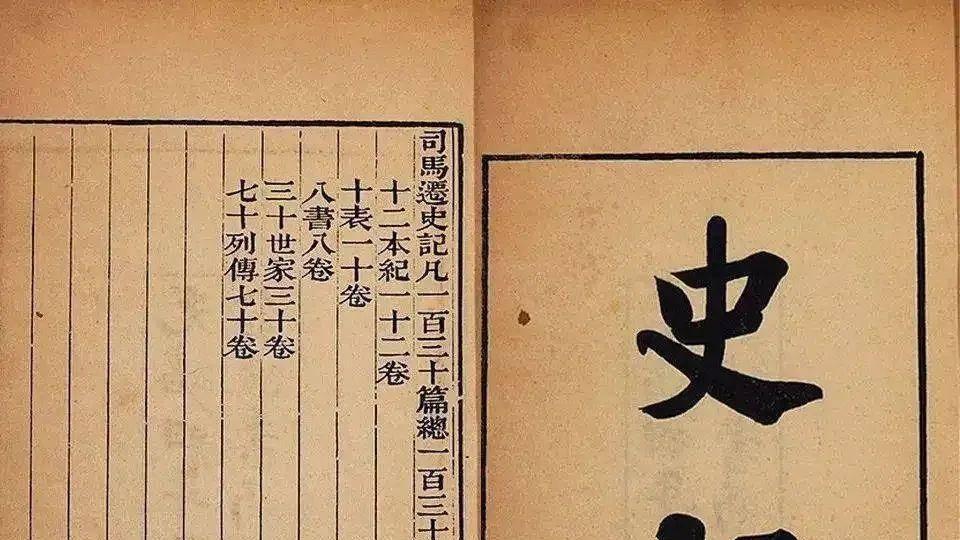 史
司馬遷史記凡一百三十篇總一百三十
十二本紀一十二卷
十表一十卷
八書八卷
三十世家三十卷
七十列傳七十卷